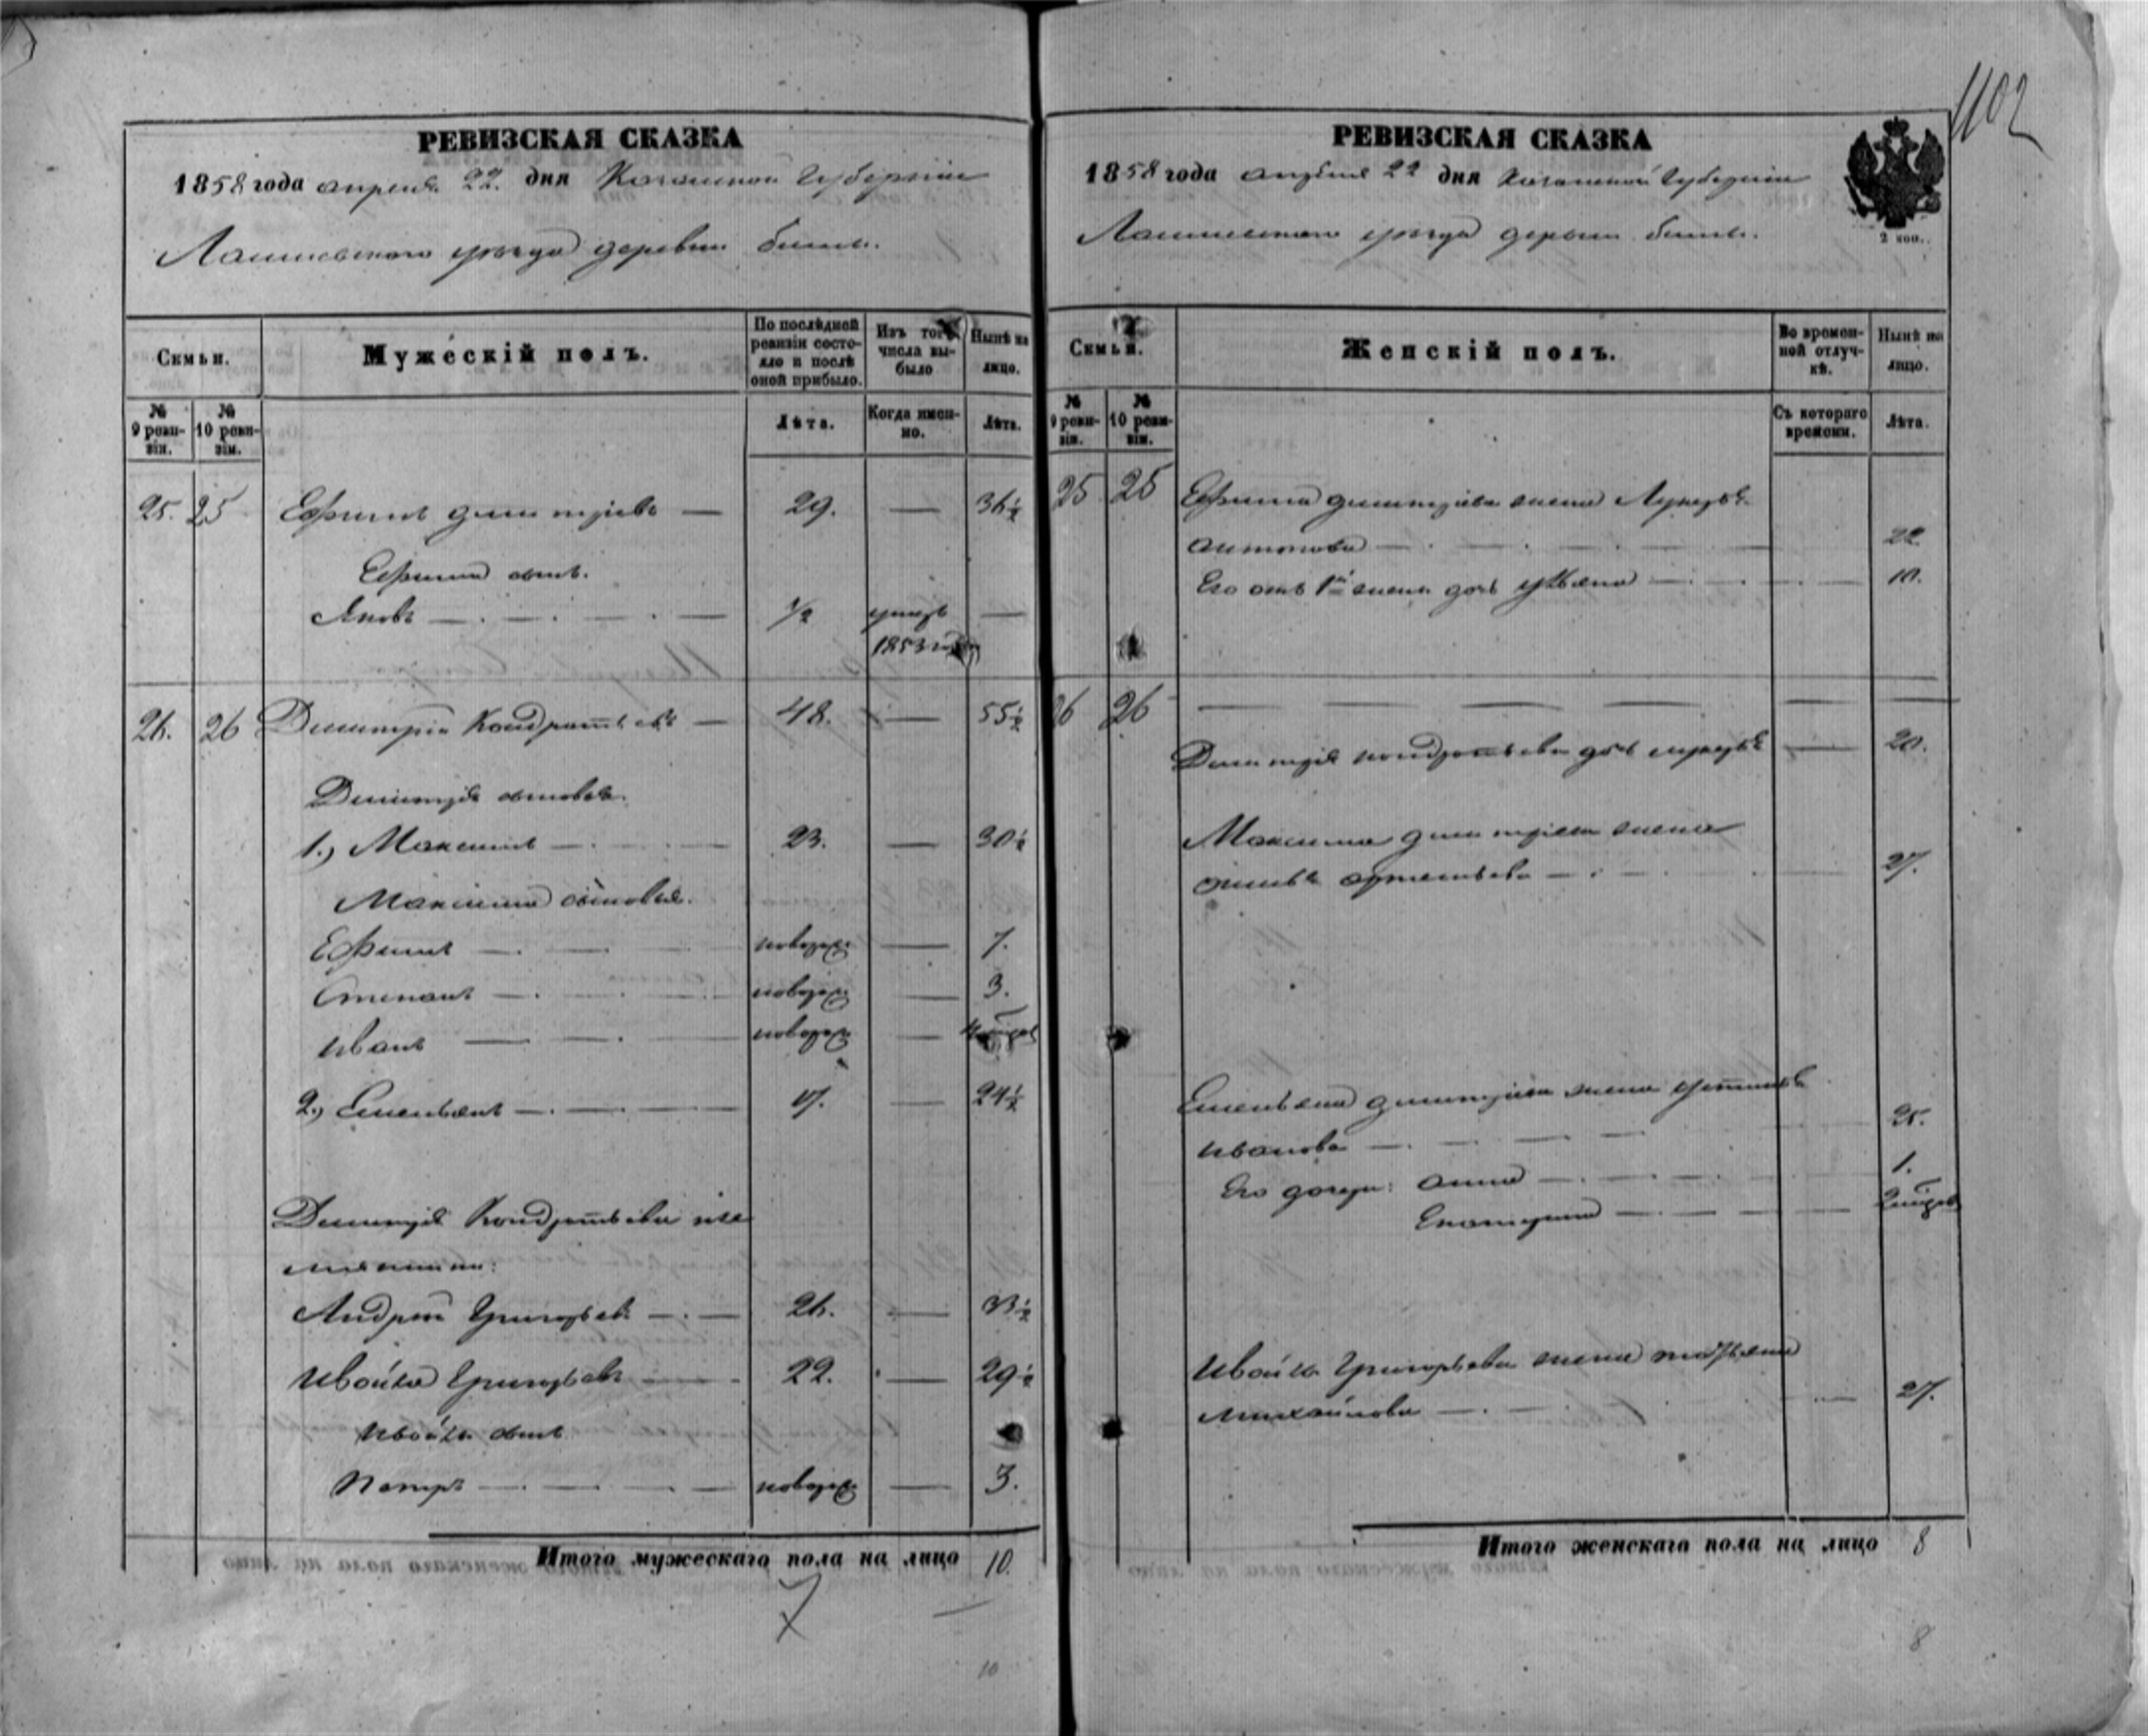 1102
РЕВИЗСКАЯ СКАЗКА
1858 года апреля 22. дня Казанской Губернии
Лаишевского уезда деревни
Семьи.
Мужескій полъ.
По послѣдней ревизіи состо-
яло и послѣ оной прибыло.
Изъ того числа вы-
было
Нынѣ на лицо.
№ 9 реви-
зіи.
№ 10 реви-
зіи.
Лѣта.
Когда имен-
но.
Лѣта.
25. 25 Ефимъ Димитріевъ — 29. — 36½
Ефима сынъ.
Яковъ — ½ умеръ —
1853
26. 26 Димитрій Кондратьевъ — 48. — 55½
Димитрія сыновья.
1.) Максимъ — 23. — 30½
Максима сыновья.
Ефимъ — новорож — 7.
Степанъ — новорож — 3.
Иванъ — новорож —
2.) Емельянъ — 17. — 24½
Димитрія Кондратьева пле
мянники:
Андрей Григорьевъ — 26. — 33½
Григорьевъ — 22. — 29½
сынъ
Петръ — новорож — 3.
Итого мужескаго пола на лицо 10.
10
РЕВИЗСКАЯ СКАЗКА
1858 года апреля 22 дня Казанской Губернии
Лаишевского уезда деревни
2 коп.
Семьи.
Женскій полъ.
Во времен-
ной отлуч-
кѣ.
Нынѣ на лицо.
№ 9 реви-
зіи.
№ 10 реви-
зіи.
Съ котораго времени.
Лѣта.
25 25 Ефима Димитріева жена Лукерья
Антонова — 22.
Его отъ 1й жены дочь — 10.
26 26 —
Димитрія Кондратьева дочь — 20.
Максима Димитріева жена
— 27.
Емельяна Димитріева жена Устинья
Иванова — 25.
Его дочери: Анна — 1.
Екатерина —
Григорьева жена
Михайлова — 27.
Итого женскаго пола на лицо 8
8